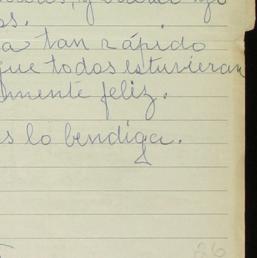 os.
a tan rápido
que todos estuvieran
lmente feliz.
s lo bendiga.
26